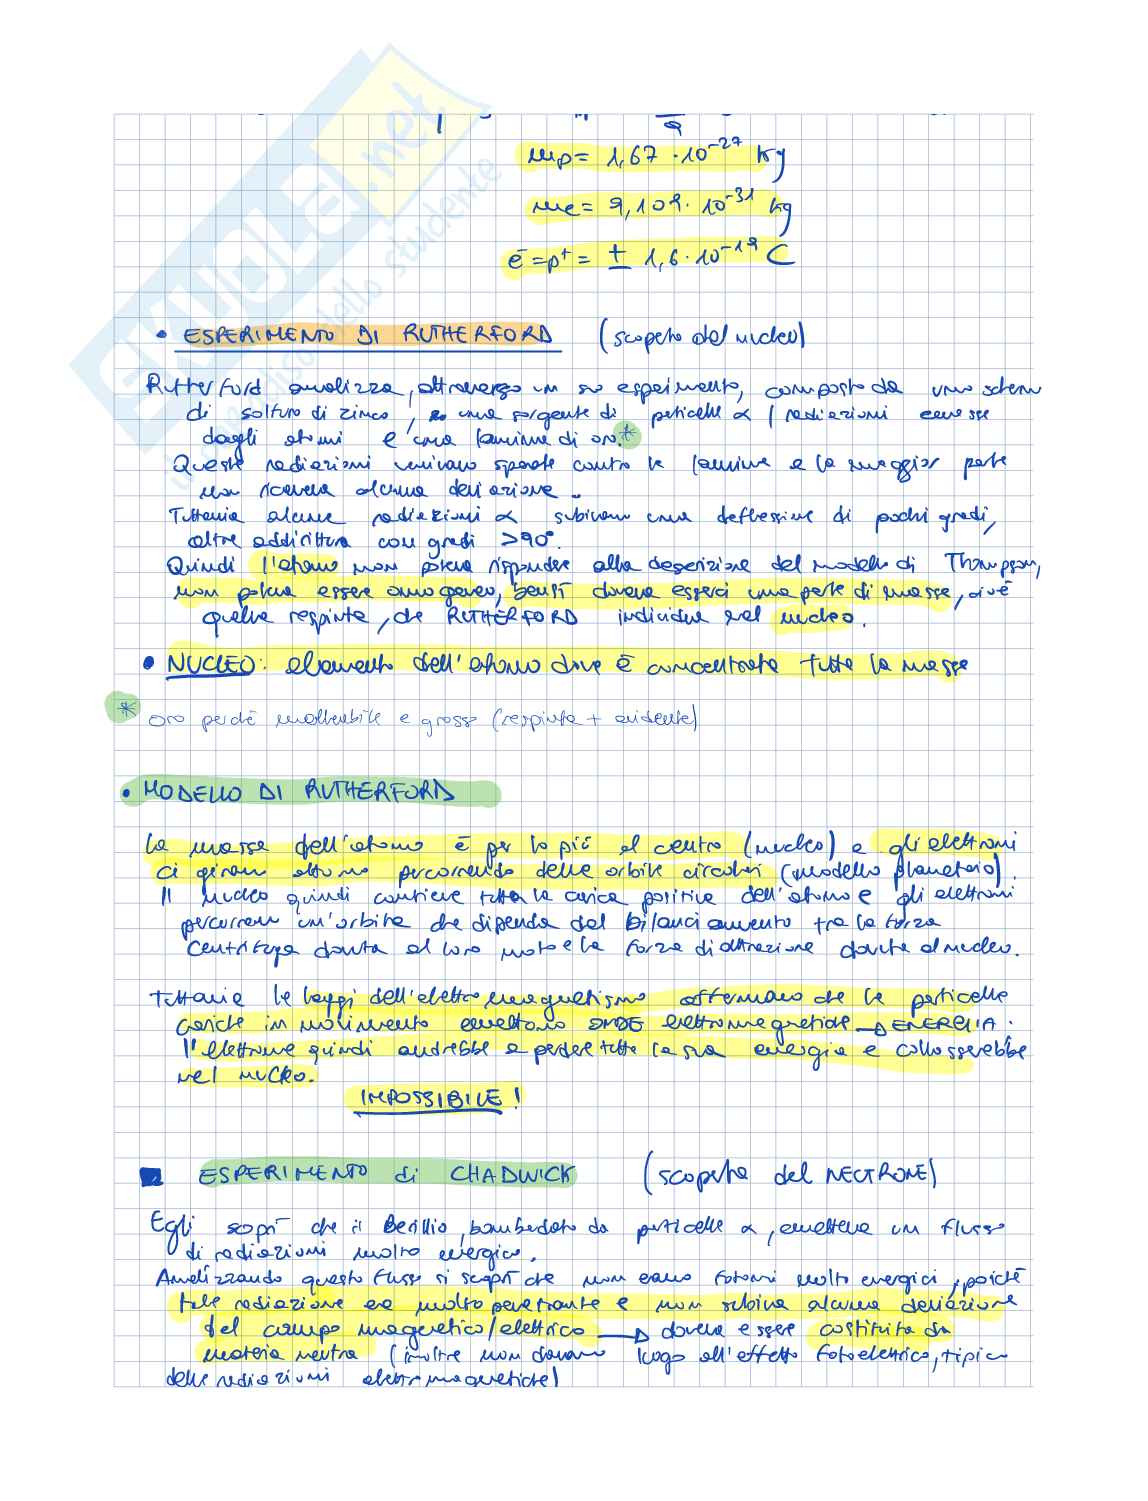 mp = 1,67 · 10⁻²⁷ kg
me = 9,109 · 10⁻³¹ kg
e⁻ = p⁺ = ± 1,6 · 10⁻¹⁹ C
• ESPERIMENTO DI RUTHERFORD (scoperta del nucleo)
Rutherford analizza, attraverso un suo esperimento, composto da uno schermo
di solfuro di zinco, una sorgente di particelle α / radiazioni emesse
dagli atomi e una lamina di oro.*
Queste radiazioni venivano sparate contro la lamina e la maggior parte
non riceveva alcuna deviazione.
Tuttavia alcune radiazioni α subivano una deflessione di pochi gradi,
altre addirittura con gradi >90°.
Quindi l'atomo non poteva rispondere alla descrizione del modello di Thompson,
non poteva essere omogeneo, bensì doveva esserci una parte di massa, cioè
quella respinta, che RUTHERFORD individua nel nucleo.
• NUCLEO: elemento dell'atomo dove è concentrata tutta la massa
* oro perché malleabile e grosso (respinta + evidente)
• MODELLO DI RUTHERFORD
La massa dell'atomo è per lo più al centro (nucleo) e gli elettroni
ci girano attorno percorrendo delle orbite circolari (modello planetario).
Il nucleo quindi contiene tutta la carica positiva dell'atomo e gli elettroni
percorrono un'orbita che dipende dal bilanciamento tra la forza
centrifuga dovuta al loro moto e la forza di attrazione dovuta al nucleo.
Tuttavia le leggi dell'elettromagnetismo affermano che le particelle
cariche in movimento emettono ONDE elettromagnetiche → ENERGIA.
l'elettrone quindi andrebbe a perdere tutta la sua energia e collasserebbe
nel nucleo.
IMPOSSIBILE!
■ ESPERIMENTO di CHADWICK (scoperta del NEUTRONE)
Egli scoprì che il Berillio, bombardato da particelle α, emetteva un flusso
di radiazioni molto energico.
Analizzando questo flusso si scoprì che non erano fotoni molto energici, poiché
tale radiazione era molto penetrante e non subiva alcuna deviazione
dal campo magnetico/elettrico → doveva essere costituita da
materia neutra (inoltre non davano luogo all'effetto fotoelettrico, tipico
delle radiazioni elettromagnetiche)
SKUOLA.net
il paradiso dello studente